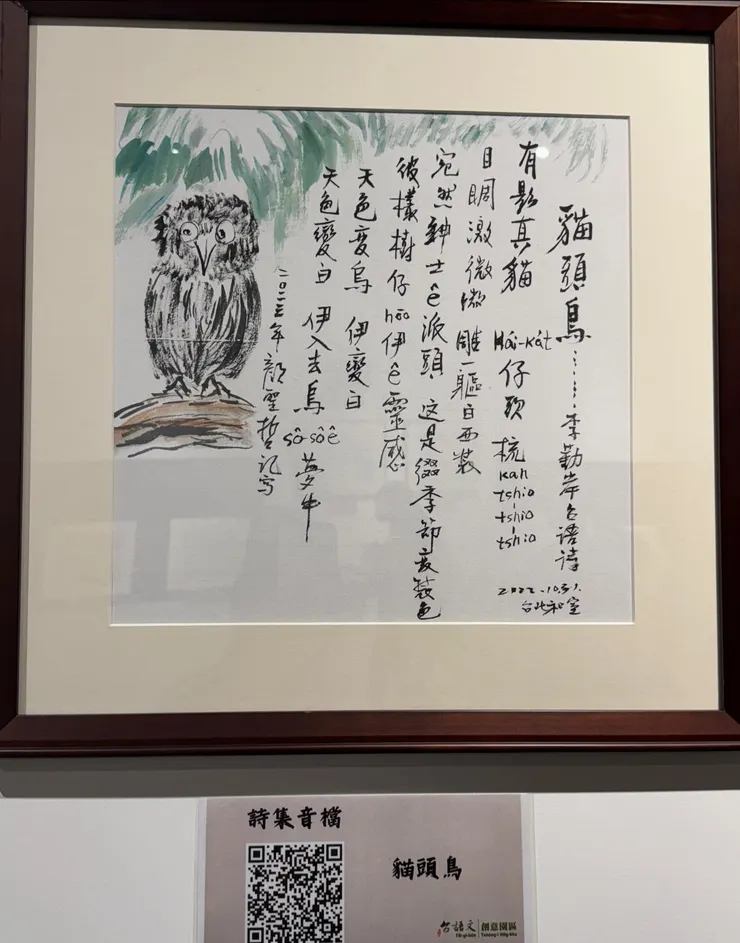 貓頭鳥……李勤岸台語詩
2022.10.31.
台北和室
有影真貓 Hái-kát 仔頭 梳 kah tshio-tshio-tshio
目睭激微微 雕一軀白西裝
宛然紳士 ê 派頭 這是綴季節變裝色
彼樣樹仔 hōo 伊 ê 靈感
天色變烏 伊變白
天色變白 伊入去烏 sô-sô ê 夢中
二〇二三年 顏聖哲記寫
詩集音檔
貓頭鳥
台語文
Tâi-gí-bûn
創意園區
Tshòng-ì Hn̂g-khu